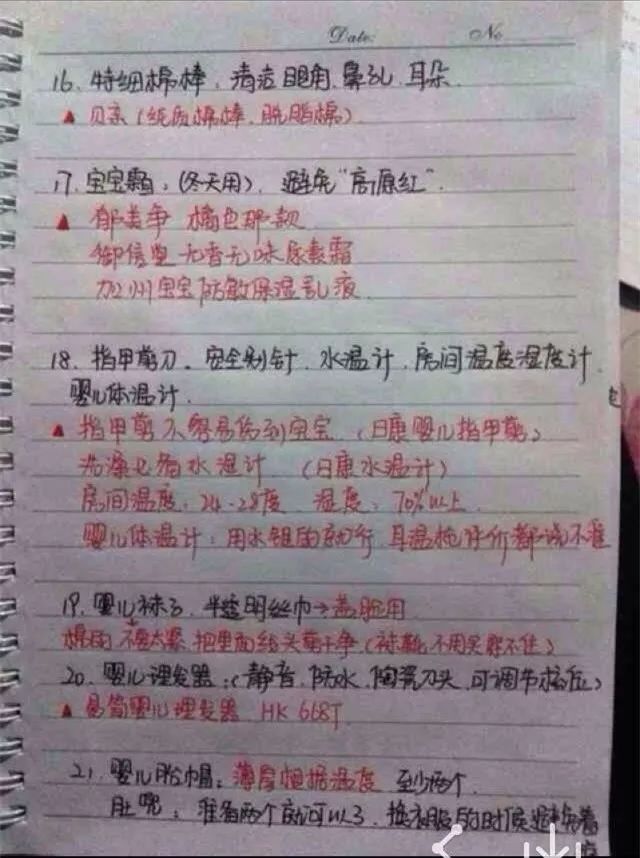 Date:          No
16. 特细棉棒:清洁眼角.鼻孔.耳朵.
▲ 贝亲(纯质棉棒.脱脂棉)
17. 宝宝霜:(冬天用).避免"高原红".
▲ 郁美净 橘色那款
御信堂 无香无味尿素霜
加州宝宝防敏保湿乳液
18. 指甲剪刀.安全别针.水温计.房间温度湿度计.
婴儿体温计.
▲ 指甲剪不容易伤到宝宝 (日康婴儿指甲剪)
洗澡必备水温计 (日康水温计)
房间温度:24-28度 湿度:70%以上.
婴儿体温计:用水银的就行,耳温枪评价都说不准
19. 婴儿袜子.半透明丝巾→盖脸用
棉的 不要太紧 把里面线头剪干净(袜靴不用买穿不住)
20. 婴儿理发器:(静音.防水.陶瓷刀头.可调节档位)
▲ 易简婴儿理发器 HK 668T
21. 婴儿胎帽:薄厚根据温度 至少两个.
肚兜:准备两个就可以了.换衣服的时候避免着